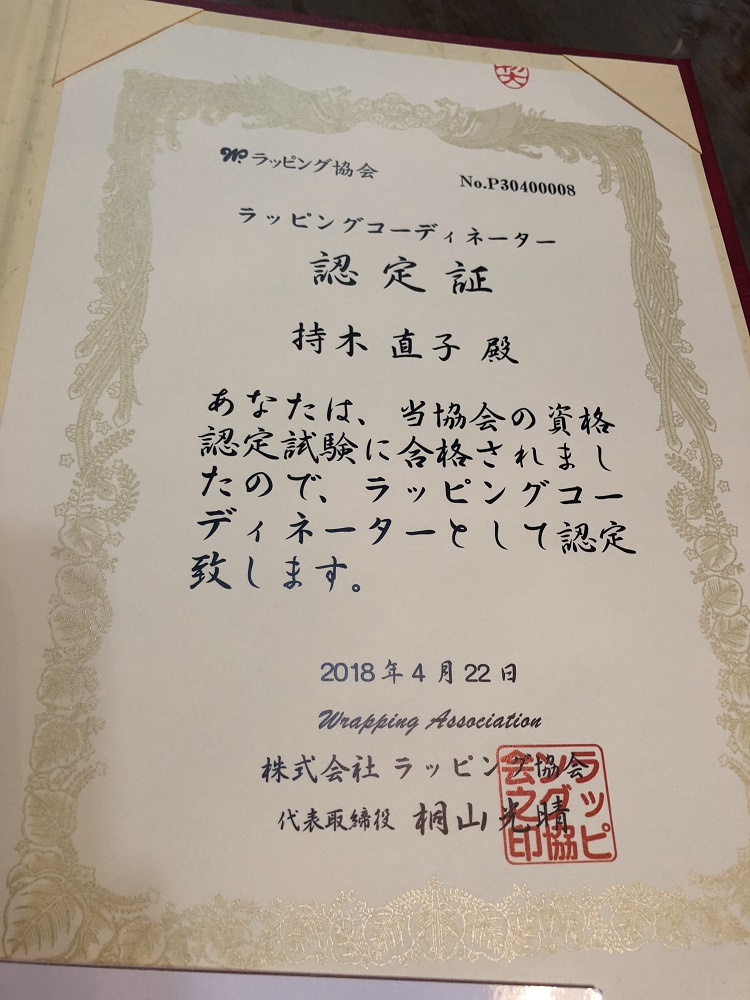 W.P. ラッピング協会
No.P30400008
ラッピングコーディネーター
認定証
持木 直子 殿
あなたは、当協会の資格
認定試験に合格されまし
たので、ラッピングコー
ディネーターとして認定
致します。
2018年4月22日
Wrapping Association
株式会社 ラッピング協会
代表取締役 桐山光晴
ラッピング協会之印